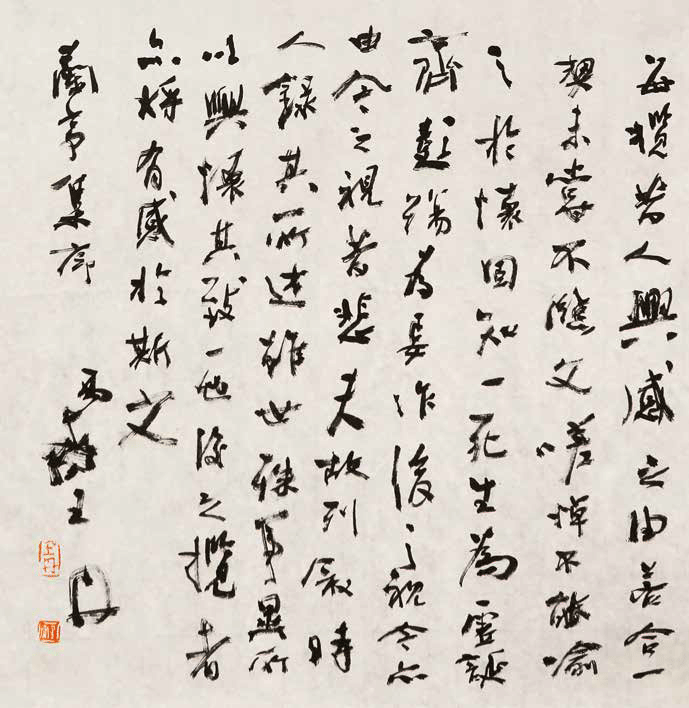 每攬昔人興感之由若合一
契未嘗不臨文嗟悼不能喻
之於懷固知一死生為虛誕
齊彭殤為妄作後之視今亦
由今之視昔悲夫故列叙時
人錄其所述雖世殊事異所
以興懷其致一也後之攬者
亦將有感於斯文
蘭亭集序
王丹